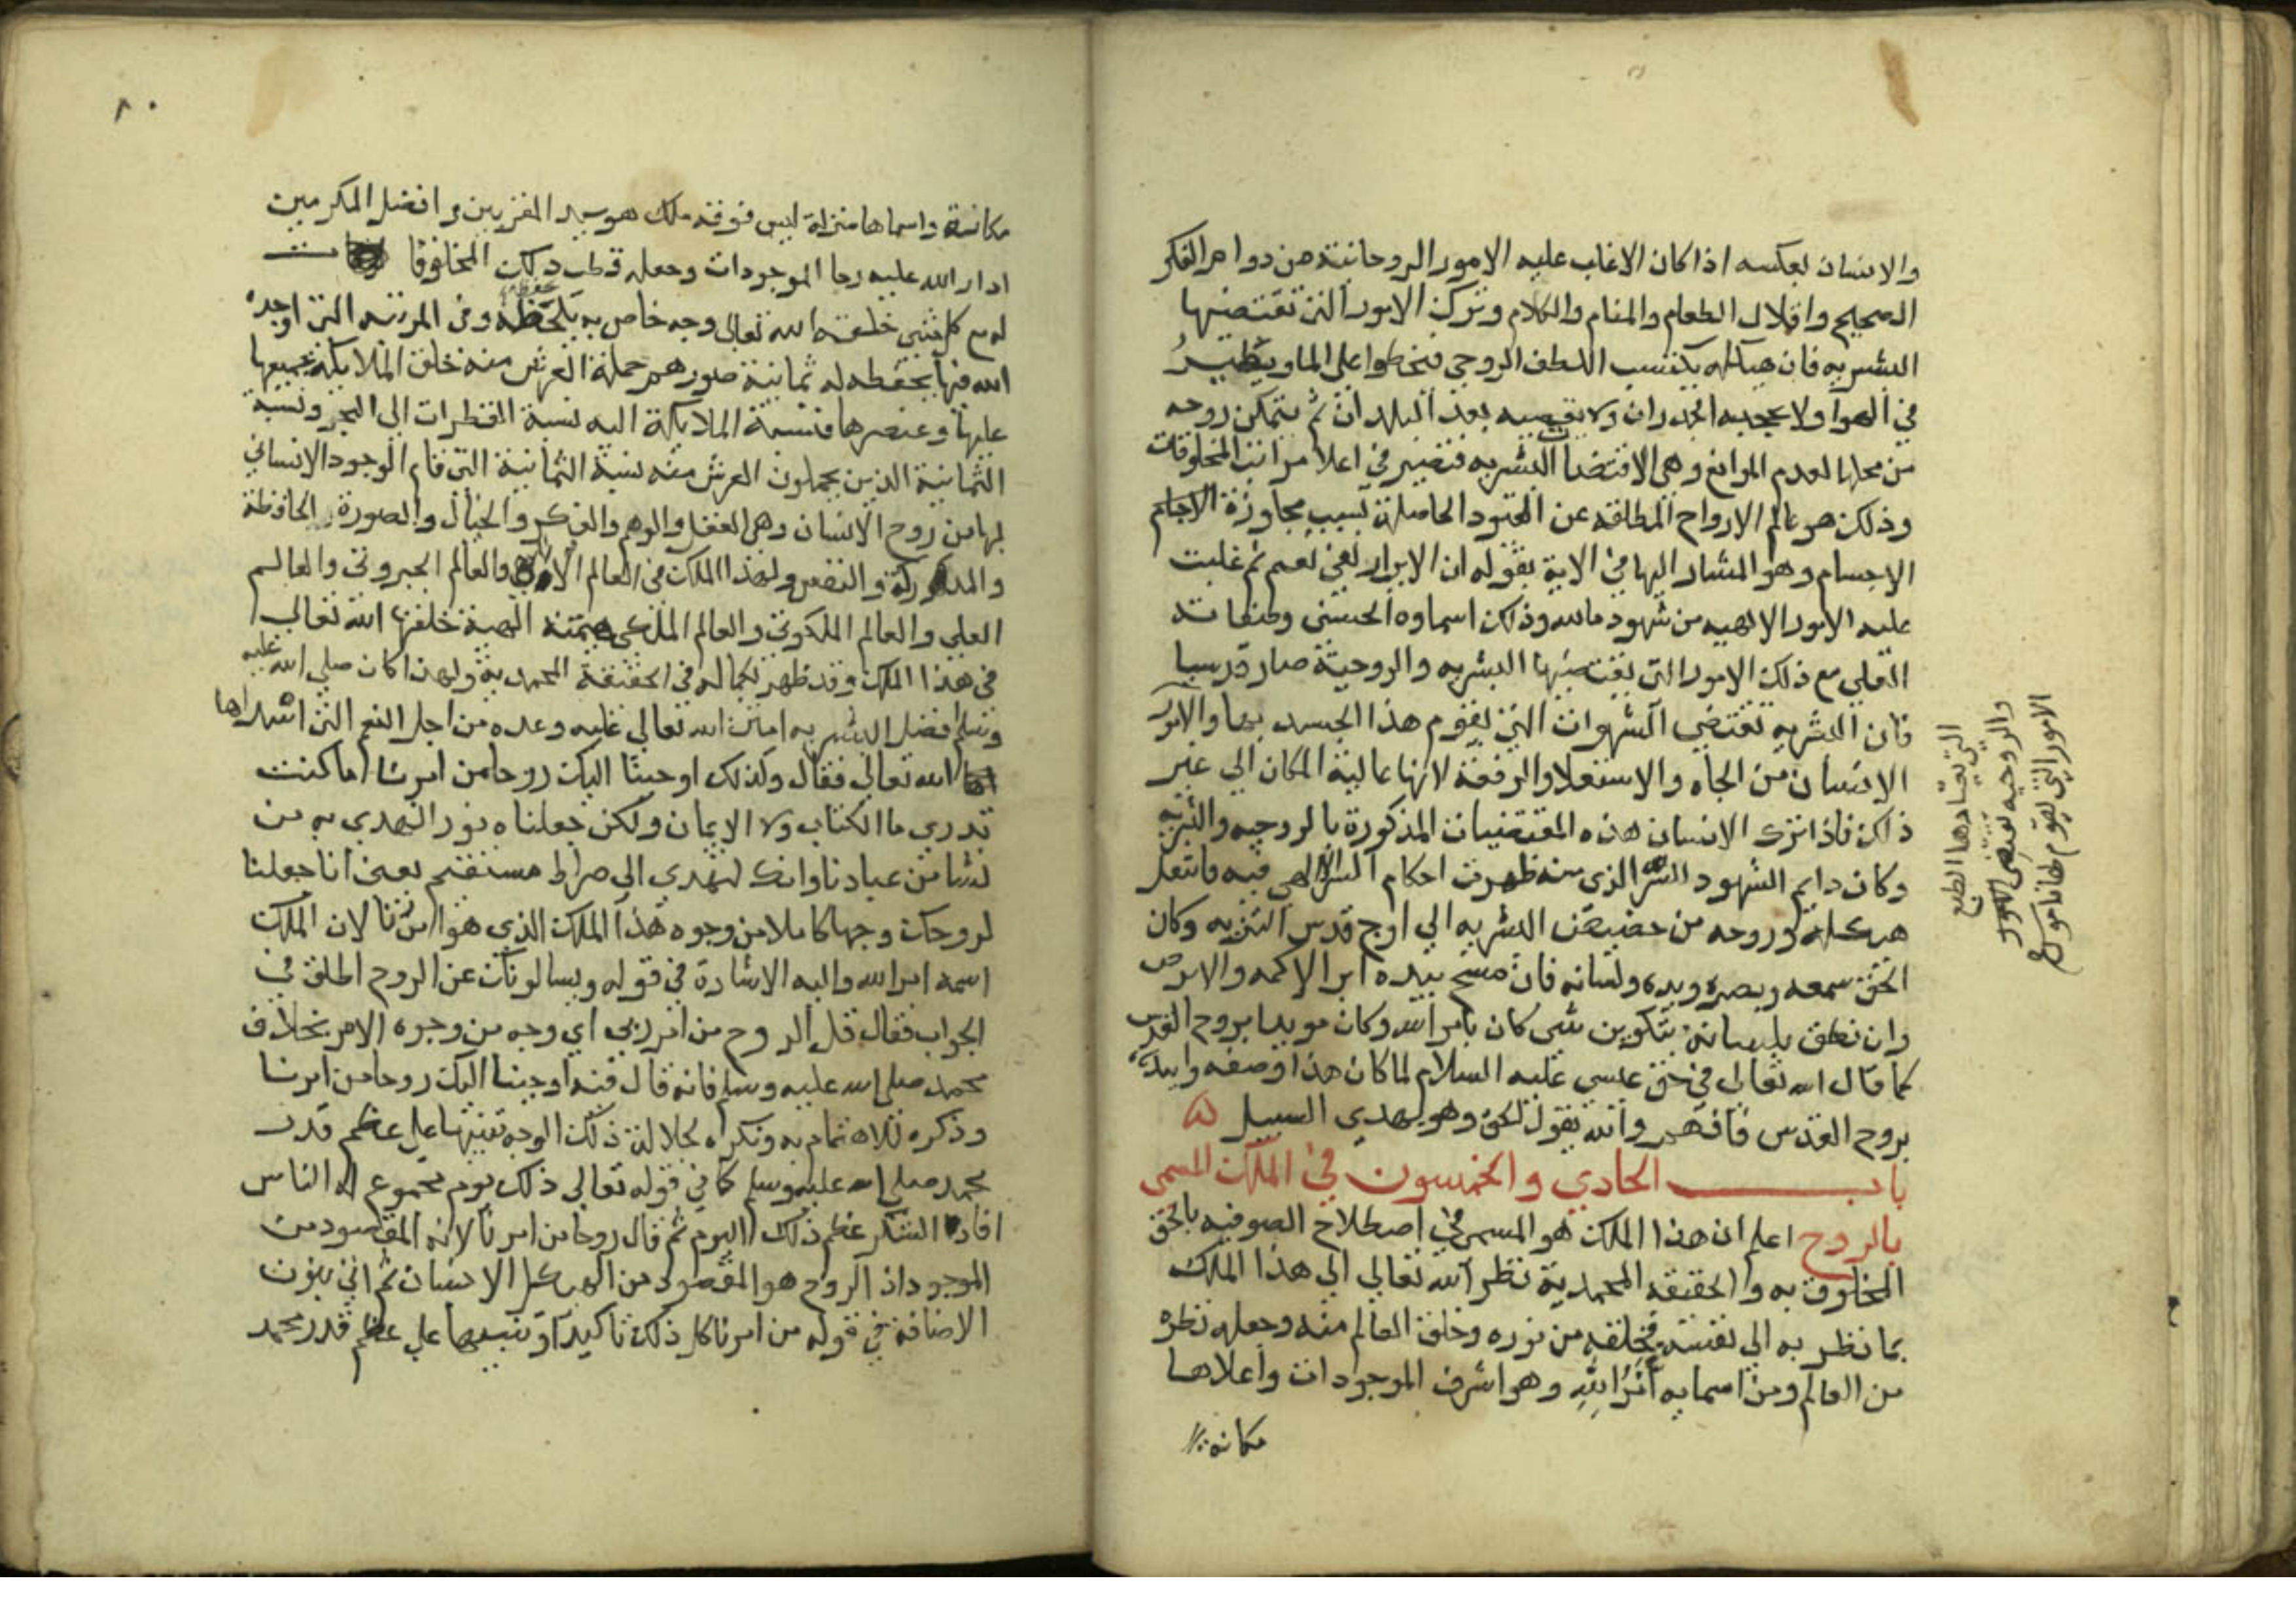 والانسان بعكسه اذا كان الاغلب عليه الامور الروحانية من دوام الفكر
الصحيح واقلال الطعام والمنام والكلام وترك الامور التى تقتضيها
البشريه فان هيكله يكتسب اللطف الروحي فيخطوا على الما ويطير
في الهوآ ولا يحجبه الجدران ولا يقصيه بعد البلدان ثم يتمكن روحه
من محلها لعدم الموانع وهي الاقتضاآت البشريه فتصير في اعلا مراتب المخلوقات
وذلك هو عالم الارواح المطلقه عن القيود الحاصلة بسبب مجاورة الاجسام
الاجسام وهو المشار اليها في الاية بقوله ان الابرار لفي نعيم ثم غلبت
عليه الامور الالهيه من شهود ما لله وذلك اسماوه الحسنى وصفاته
العلى مع ذلك الامور التى يقتضيها البشريه والروحية صار قدسيا
فان البشريه تقتضي الشهوات التي يقوم هذا الجسد بها والامور
التي يعتادها الطبع
والروحيه تقتضى الامور
الامور التي يقوم بها ناموس
الانسان من الجاه والاستعلا والرفعة لانها عالية المكان الي غير
ذلك فاذا ترك الانسان هذه المقتضيات المذكورة بالروحيه والبشريه
وكان دايم الشهود للسر الذى منه ظهرت احكام السر الالهي فيه فانتقل
هيكله وروحه من حضيض البشريه الي اوج قدس التنزيه وكان
الحق سمعه وبصره ويده ولسانه فان مسح بيده ابرا الاكمه والابرص
وان نطق بلسانه بتكوين شى كان بامر الله وكان مويدا بروح القدس
كما قال الله تعالى في حق عيسى عليه السلام لما كان هذا وصفه وايدناه
بروح القدس فافهم والله يقول الحق وهو يهدي السبيل
باب الحادي والخمسون في الملك المسمى
بالروح اعلم ان هذا الملك هو المسمى في اصطلاح الصوفيه بالحق
المخلوق به والحقيقه المحمدية نظر الله تعالي الي هذا الملك
بما نظر به الى نفسه فخلقه من نوره وخلق العالم منه وجعله نظره
من العالم ومن اسمايه أمر الله وهو اشرف الموجودات واعلاها
مكانة
٨٠
مكانة واسماها منزلة ليس فوقه ملك هو سيد المقربين وافضل المكرمين
ادار الله عليه رحا الموجودات وجعله قطب فلك المخلوقات
له مع كل شى خلقه الله تعالى وجه خاص به يلحقه وفى المرتبه التى اوجده
الله فيها يحفظه له ثمانية صور هم حملة العرش منه خلق الملايكة جميعها
عليها وعنصرها فنسبة الملايكة اليه نسبة القطرات الى البحر ونسبة
الثمانية الذين يحملون العرش منه نسبة الثمانية التى قام الوجود الانساني
بها من روح الانسان وهى العقل والوهم والفكر والخيال والصورة والحافظة
والمدركة والنفس ولهذا الملك فى العالم الافقي والعالم الجبروتى والعالم
العلي والعالم الملكوتى والعالم الملكى هيمنة الهية خلقها الله تعالى
في هذا الملك وقد ظهر بكماله في الحقيقة المحمديه ولهذا كان صلى الله عليه
وسلم افضل البشر به امتن الله تعالى عليه وعده من اجل النعم التى اسداها
الله تعالى فقال وكذلك اوحينا اليك روحا من امرنا ما كنت
تدري ما الكتاب ولا الايمان ولكن جعلناه نورا نهدي به من
نشا من عبادنا وانك لتهدي الى صراط مستقيم يعنى انا جعلنا
لروحك وجها كاملا من وجوه هذا الملك الذي هو امرنا لان الملك
اسمه امر الله واليه الاشارة في قوله ويسالونك عن الروح اطلق في
الجواب فقال قل الروح من امر ربي اي وجه من وجوه الامر بخلاف
محمد صلى الله عليه وسلم فانه قال فيه اوحينا اليك روحا من امرنا
وذكره للاهتمام به ونكره لجلالة ذلك الوجه تنبيها على عظم قدر
محمد صلى الله عليه وسلم كما في قوله تعالى ذلك يوم مجموع له الناس
افاد التنكير عظم ذلك اليوم ثم قال روحا من امرنا لانه المقصود من
الموجود اذ الروح هو المقصود من الهيكل الانسان ثم اتى بنون
الاضافة في قوله من امرنا كل ذلك تاكيدا وتنبيها على عظم قدر محمد